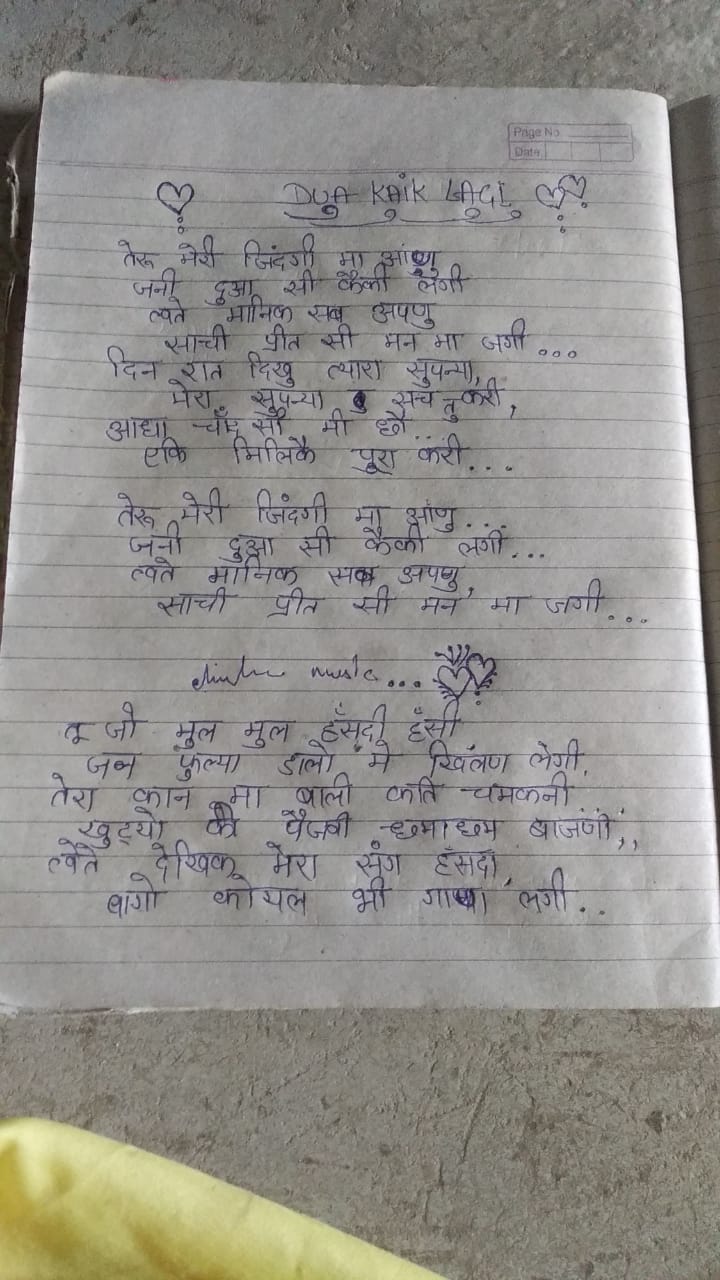 Page No
Date
DUA KAIK LAGI
तेरू मेरी जिंदगी मा आंणु
जनी दुआ सी कैकी लगी
त्वते मानिक सब अपणु
साची प्रीत सी मन मा जगी...
दिन रात दिखु त्यारा सुपन्या,
मेरा सुपन्या सच तु करी,
आधा चाँद सी मी छौ...
एकि मिलिकै पुरा करी...
तेरू मेरी जिंदगी मा आंणु...
जनी दुआ सी कैकी लगी...
त्वते मानिक सब अपणु,
साची प्रीत सी मन मा जगी...
music...
तू जो मुल मुल हँसदी हँसी
जब फुल्या डालो मे खिलण लेगी,
तेरा कान मा बाली कति चमकनी
खुट्यो की पैजबी छमाछम बाजणी,,
त्वैते देखिक मेरा संग हँसदा,
बागो कोयल भी गाण लगी..